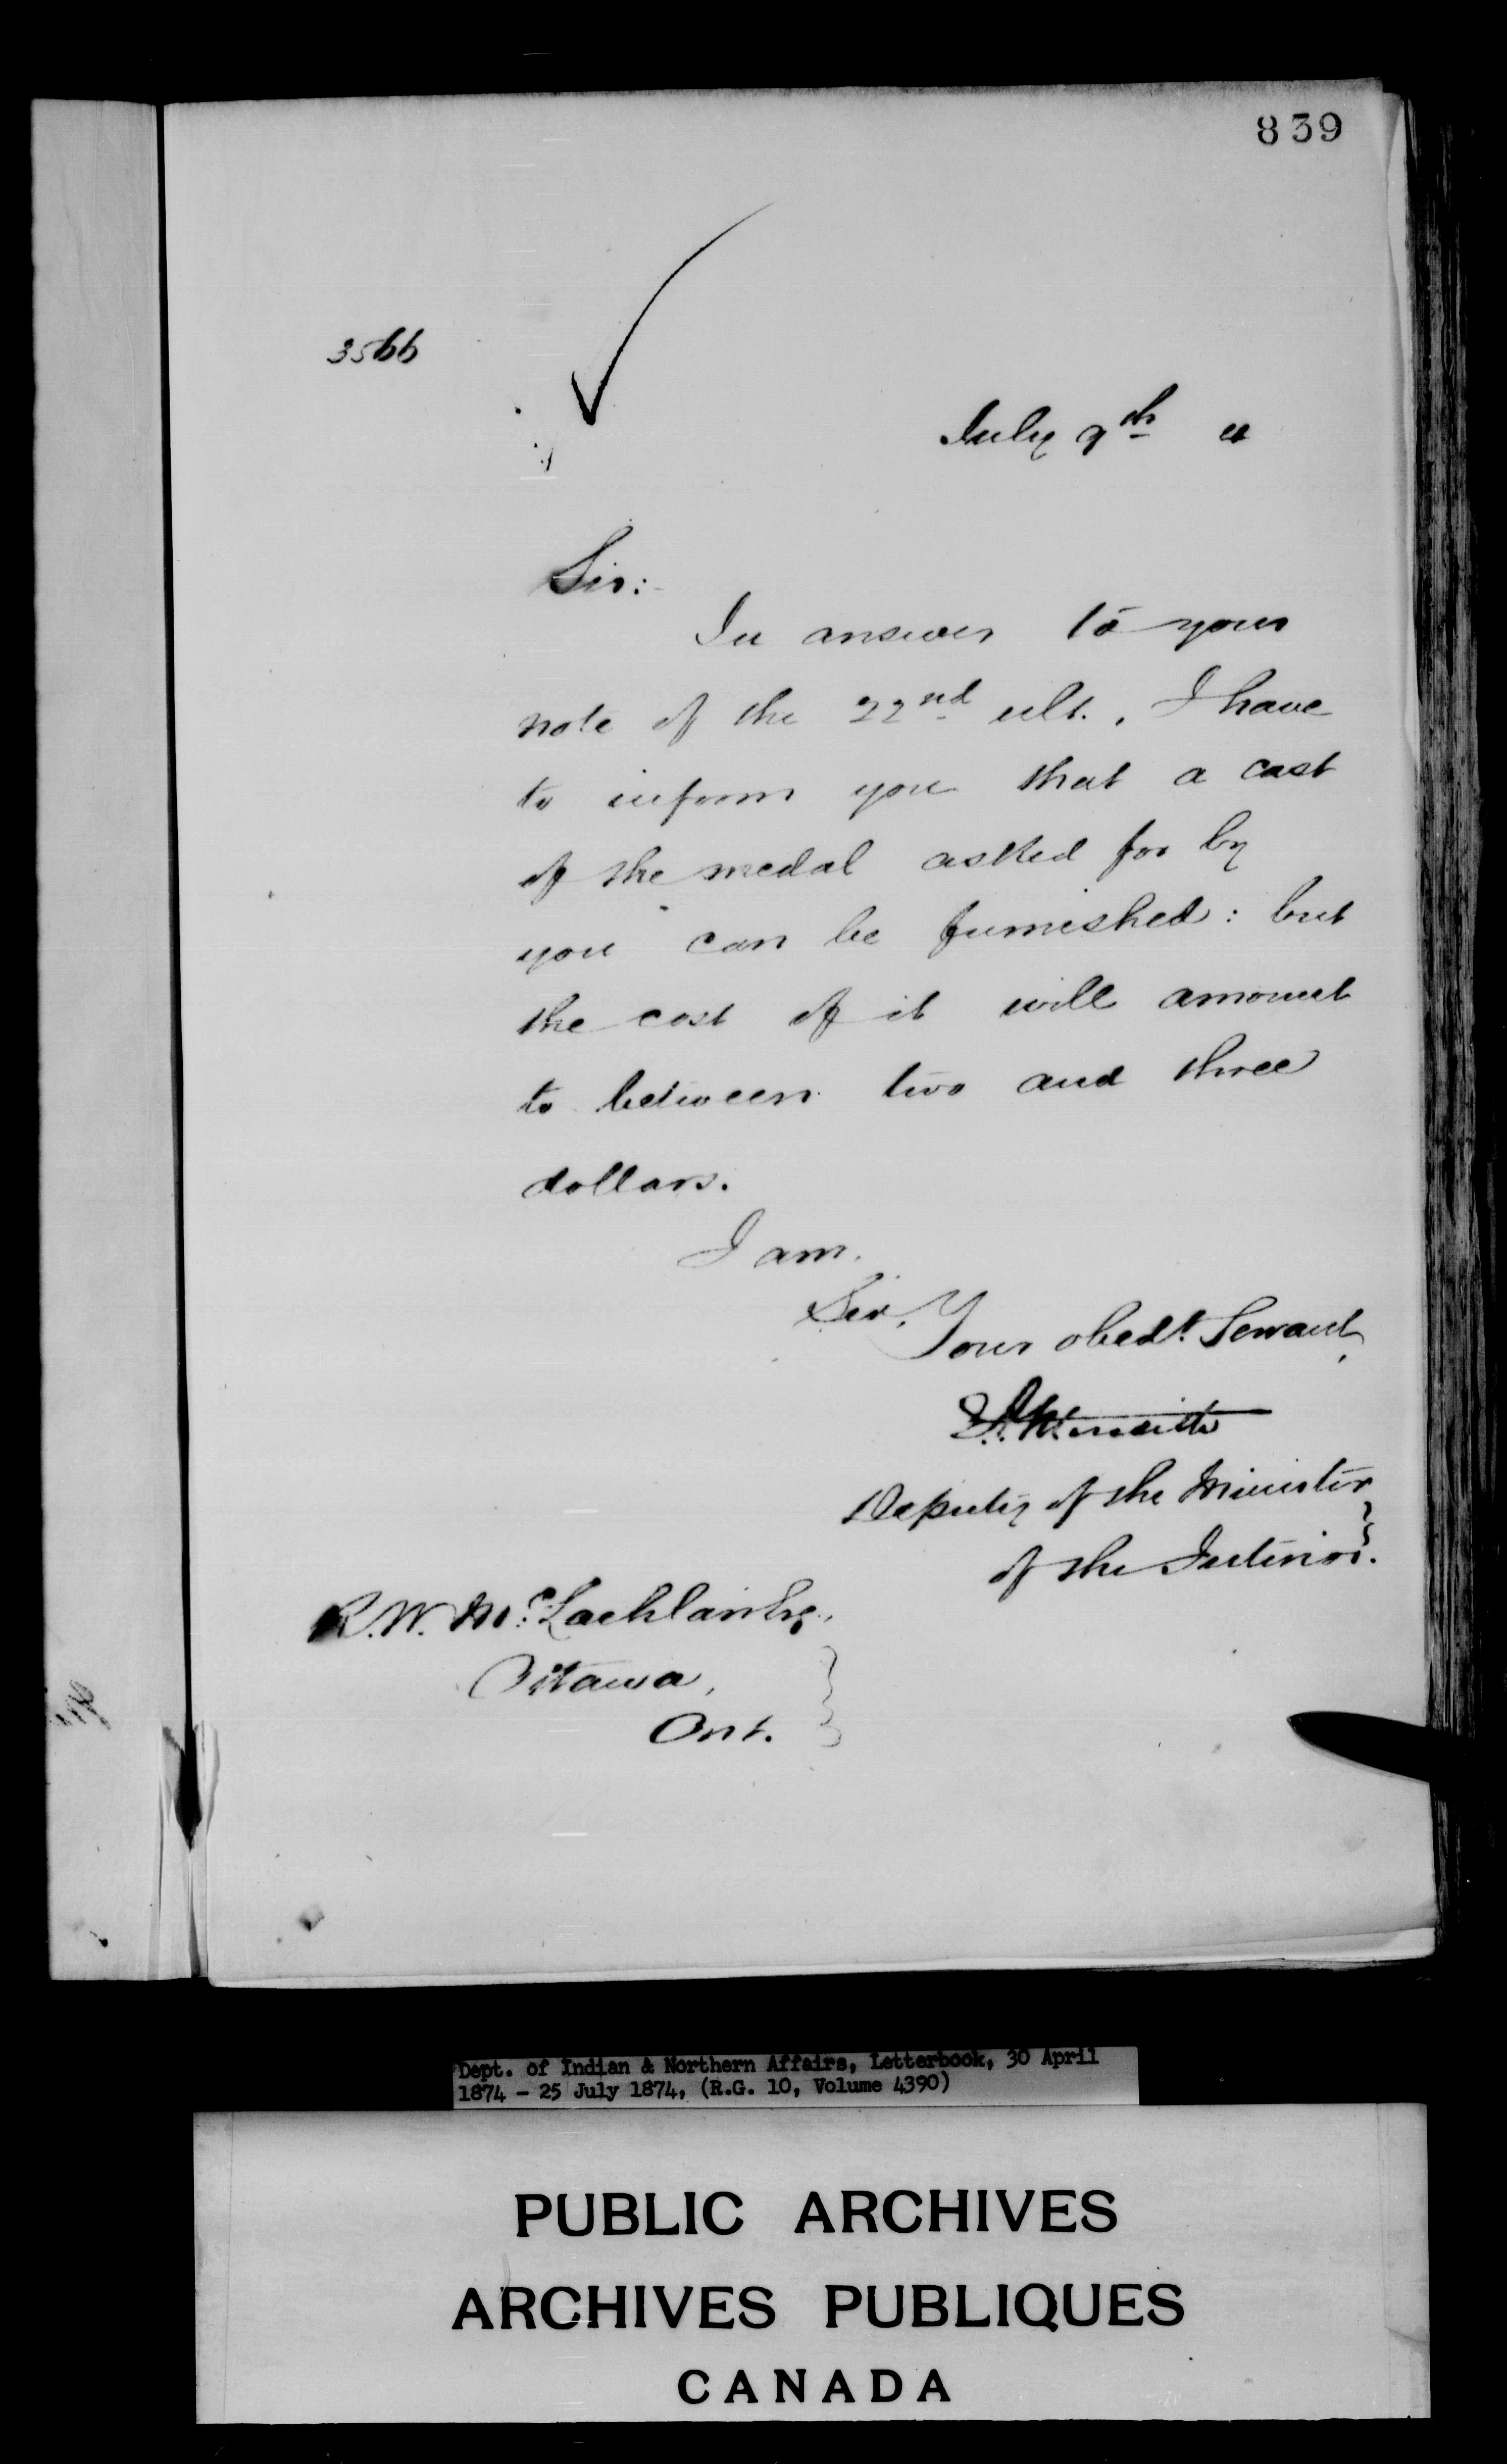 839
3566
July 9th "
Sir:
In answer to your
note of the 22nd ult., I have
to inform you that a cast
of the medal asked for by
you can be furnished: but
the cost of it will amount
to between two and three
dollars.
I am.
Sir,
Your obedt. Servant,
E.A. Meredith
Deputy of the Minister
of the Interior.
R.W. McLachlan Esq.,
Ottawa,
Ont.
Dept. of Indian & Northern Affairs, Letterbook, 30 April
1874 - 25 July 1874, (R.G. 10, Volume 4390)
PUBLIC ARCHIVES
ARCHIVES PUBLIQUES
CANADA